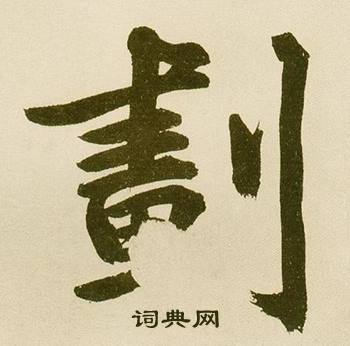 劃
词典网